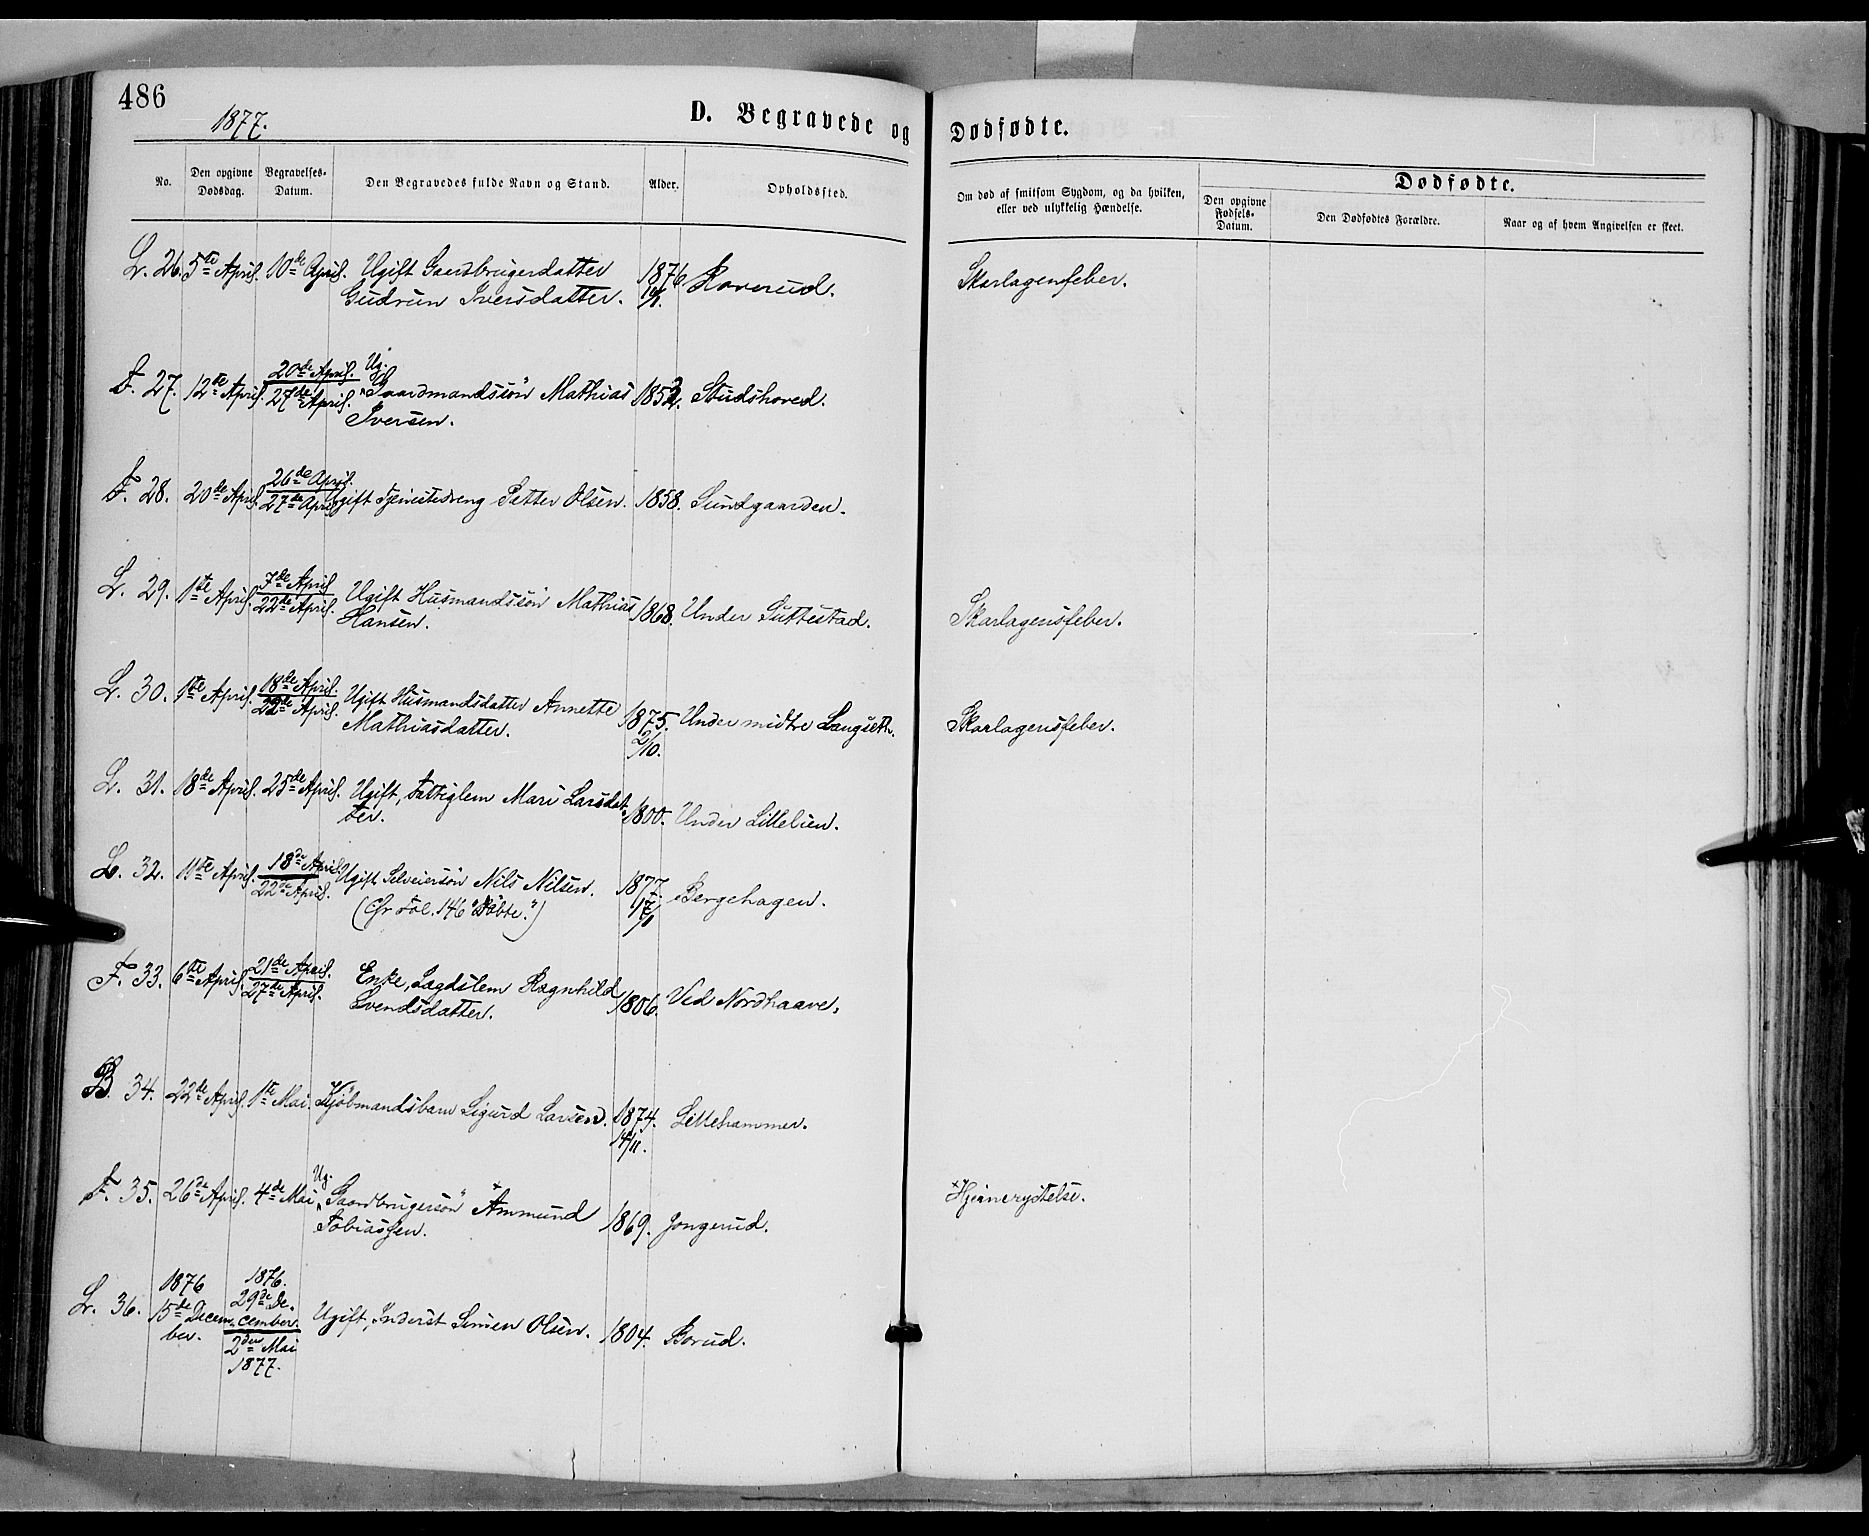 486
1877.
D. Begravede og Dødfødte.
No.
Den opgivne Dødsdag.
Begravelses-Datum.
Den Begravedes fulde Navn og Stand.
Alder.
Opholdssted.
Om død af smitsom Sygdom, og da hvilken,
eller ved ulykkelig Hændelse.
Dødfødte.
Den opgivne Fødsels-Datum.
Den Dødfødtes Forældre.
Naar og af hvem Angivelsen er skeet.
L. 26. 5te April. 10de April. Ugift Gaardbrugerdatter 1876. Roverud. Skarlagensfeber.
Gudrun Iversdatter.
F. 27. 12te April. 20de April. Ug. "Gaardmandssøn" Mathias Studshoved.
27de April. Iversen.
F. 28. 20de April. 26de April. Ugift Tjenestedreng Petter Olsen. 1858. Sundgaarden.
27de April
L. 29. 1ste April. 7de April Ugift Husmandssøn Mathias 1868. Under Suttestad. Skarlagensfeber.
22de April. Hansen.
L. 30. 1ste April. 18de April. Ugift Husmandsdatter Annette 1875. Under midtre Langseth. Skarlagensfeber.
22de April. Mathiasdatter. 2/10.
L. 31. 18de April. 25de April. Ugift, Fattiglem Mari Larsdat- 1800. Under Lillelien.
ter.
L. 32. 11te April. 18de April. Ugift Selveiersøn Nils Nilsen. 1877. Bergehagen.
22de April. (Cfr. Fol. 146 "Døbte.") 17/1
F. 33. 6te April. 21de April. Enke, Lægdslem Ragnhild 1806. Ved Nordhaave.
27de April. Svendsdatter.
B. 34. 22de April. 1ste Mai. Kjøbmandsbarn Sigurd Larsen. 1874. Lillehammer.
14/11.
F. 35. 26de April. 4de Mai Ug. "Gaardbrugersøn" ×Ammund 1869. Jongerud. ×Hjernerystelse.
Tobiassen.
L. 36. 1876 15de Decem- ber. 1876. 29de De- cember. Ugift, Inderst Simen Olsen. 1804. Borud.
2den Mai
1877.